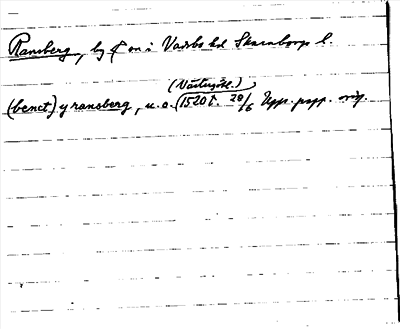 Ransberg, by o sn i Vadsbo hd Skaraborgs l.
(Västergötl.)
(benct) y ransberg, u.o. (1520 t. 28/6 Upps. papp. orig.